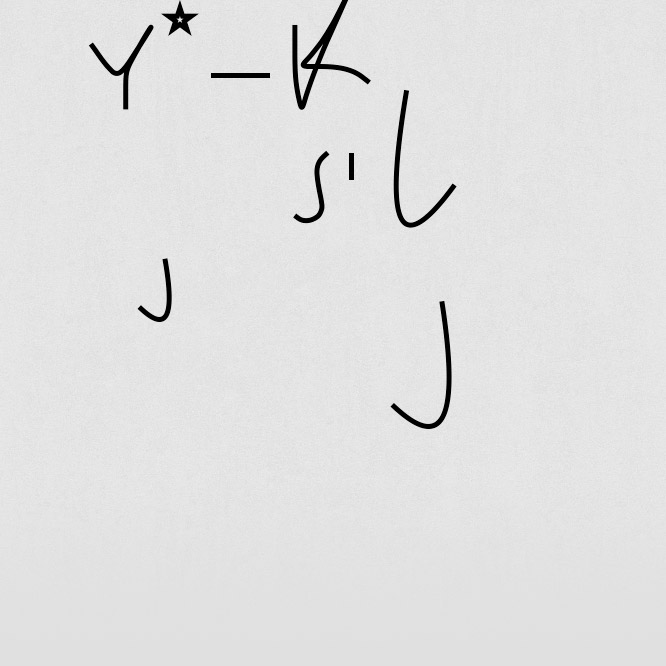 Y★—K
S'L
J
J